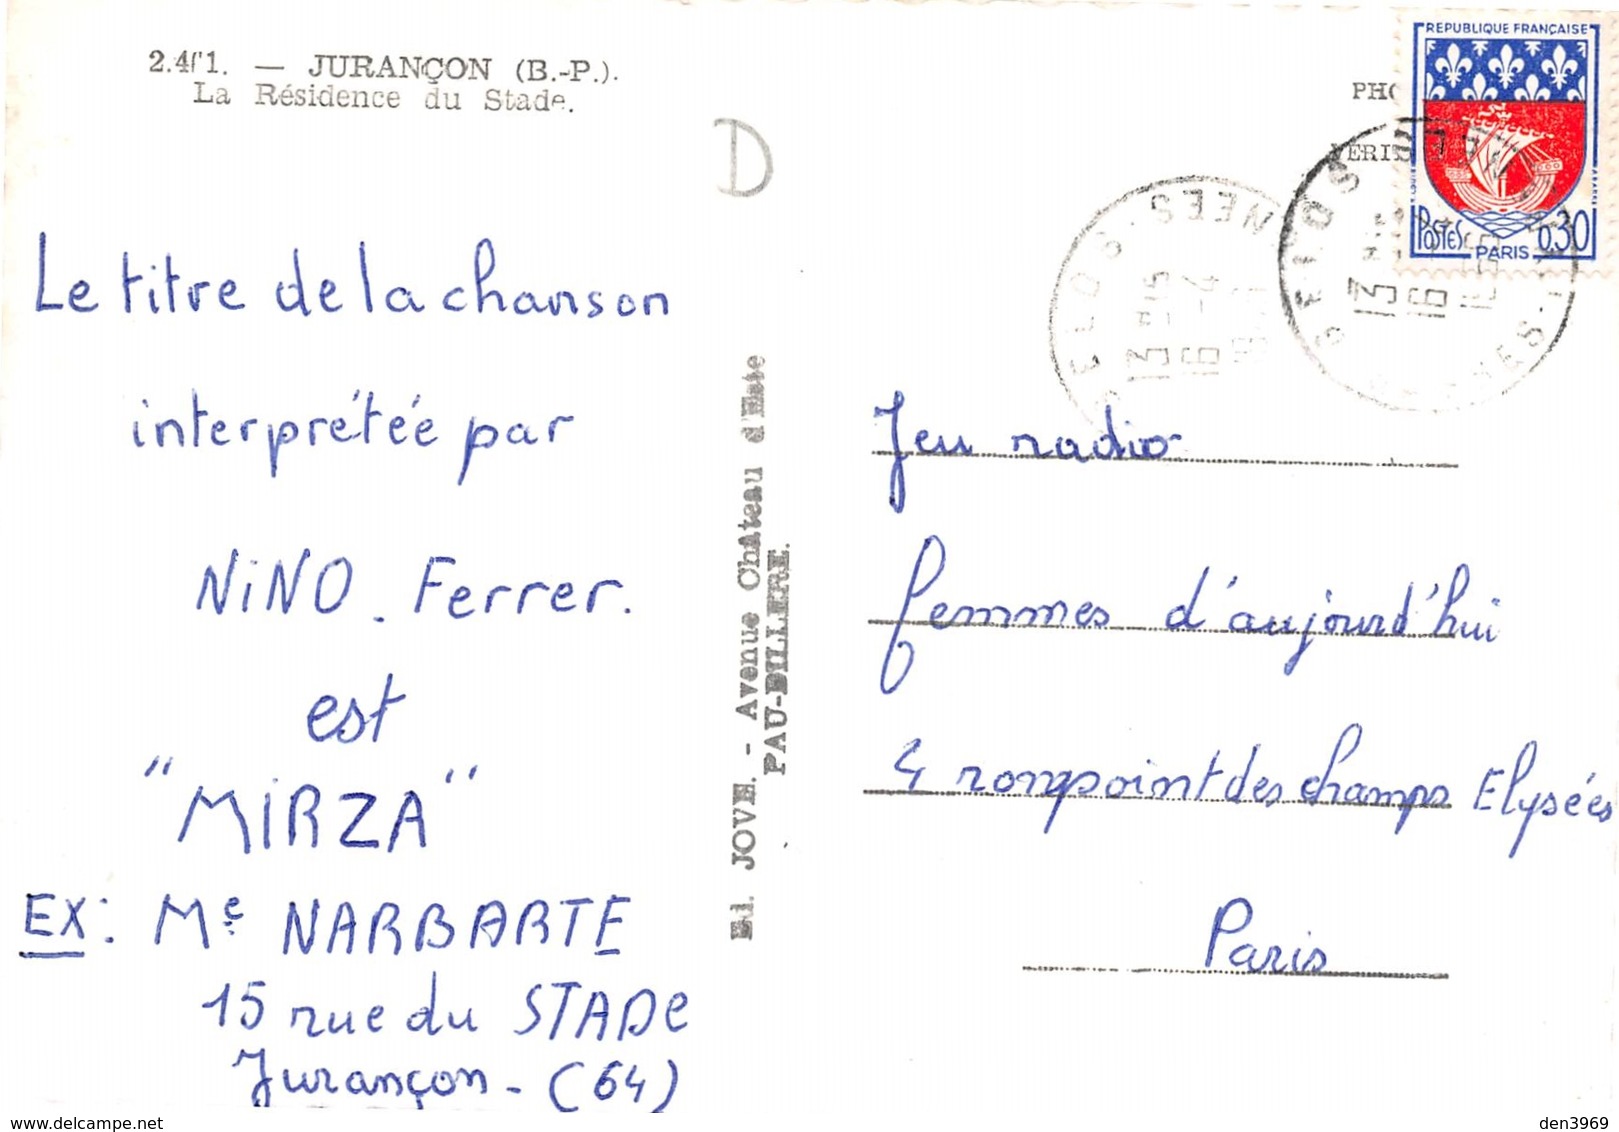 JURANÇON (B.-P.).
La Résidence du Stade.
D
Le titre de la chanson
interprétée par
NiNO. Ferrer.
est
"MiRZA"
EX: Me NARBARTE
15 rue du STADe
Jurançon - (64)
Ed. JOVE. - Avenue Château d'Este
PAU-BILLERE.
REPUBLIQUE FRANÇAISE
POSTES
0,30
PARIS
Jeu radio
femmes d'aujourd'hui
4 rompoint des champs Elysées
Paris
den3969